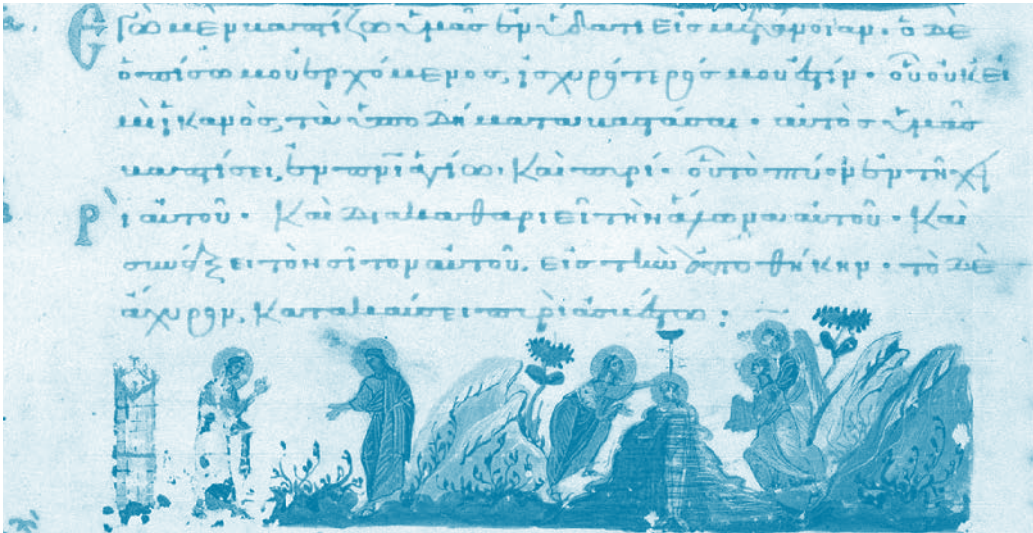 Ἐγὼ μὲν βαπτίζω ὑμᾶς ἐν ὕδατι εἰς μετάνοιαν· ὁ δὲ
ὀπίσω μου ἐρχόμενος, ἰσχυρότερός μου ἐστίν· οὗ οὐκ εἰ
μὶ ἱκανὸς, τὰ ὑποδήματα βαστάσαι· αὐτὸς ὑμᾶς
βαπτίσει, ἐν πνι ἁγίω· καὶ πυρί· οὗ τὸ πτύον ἐν τῆ χει
ρὶ αὐτοῦ· καὶ διακαθαριεῖ τὴν ἅλωνα αὐτοῦ· καὶ
συνάξει τὸν σῖτον αὐτοῦ, εἰς τὴν ἀποθήκην· τὸ δὲ
ἄχυρον, κατακαύσει πυρὶ ἀσβέστω: